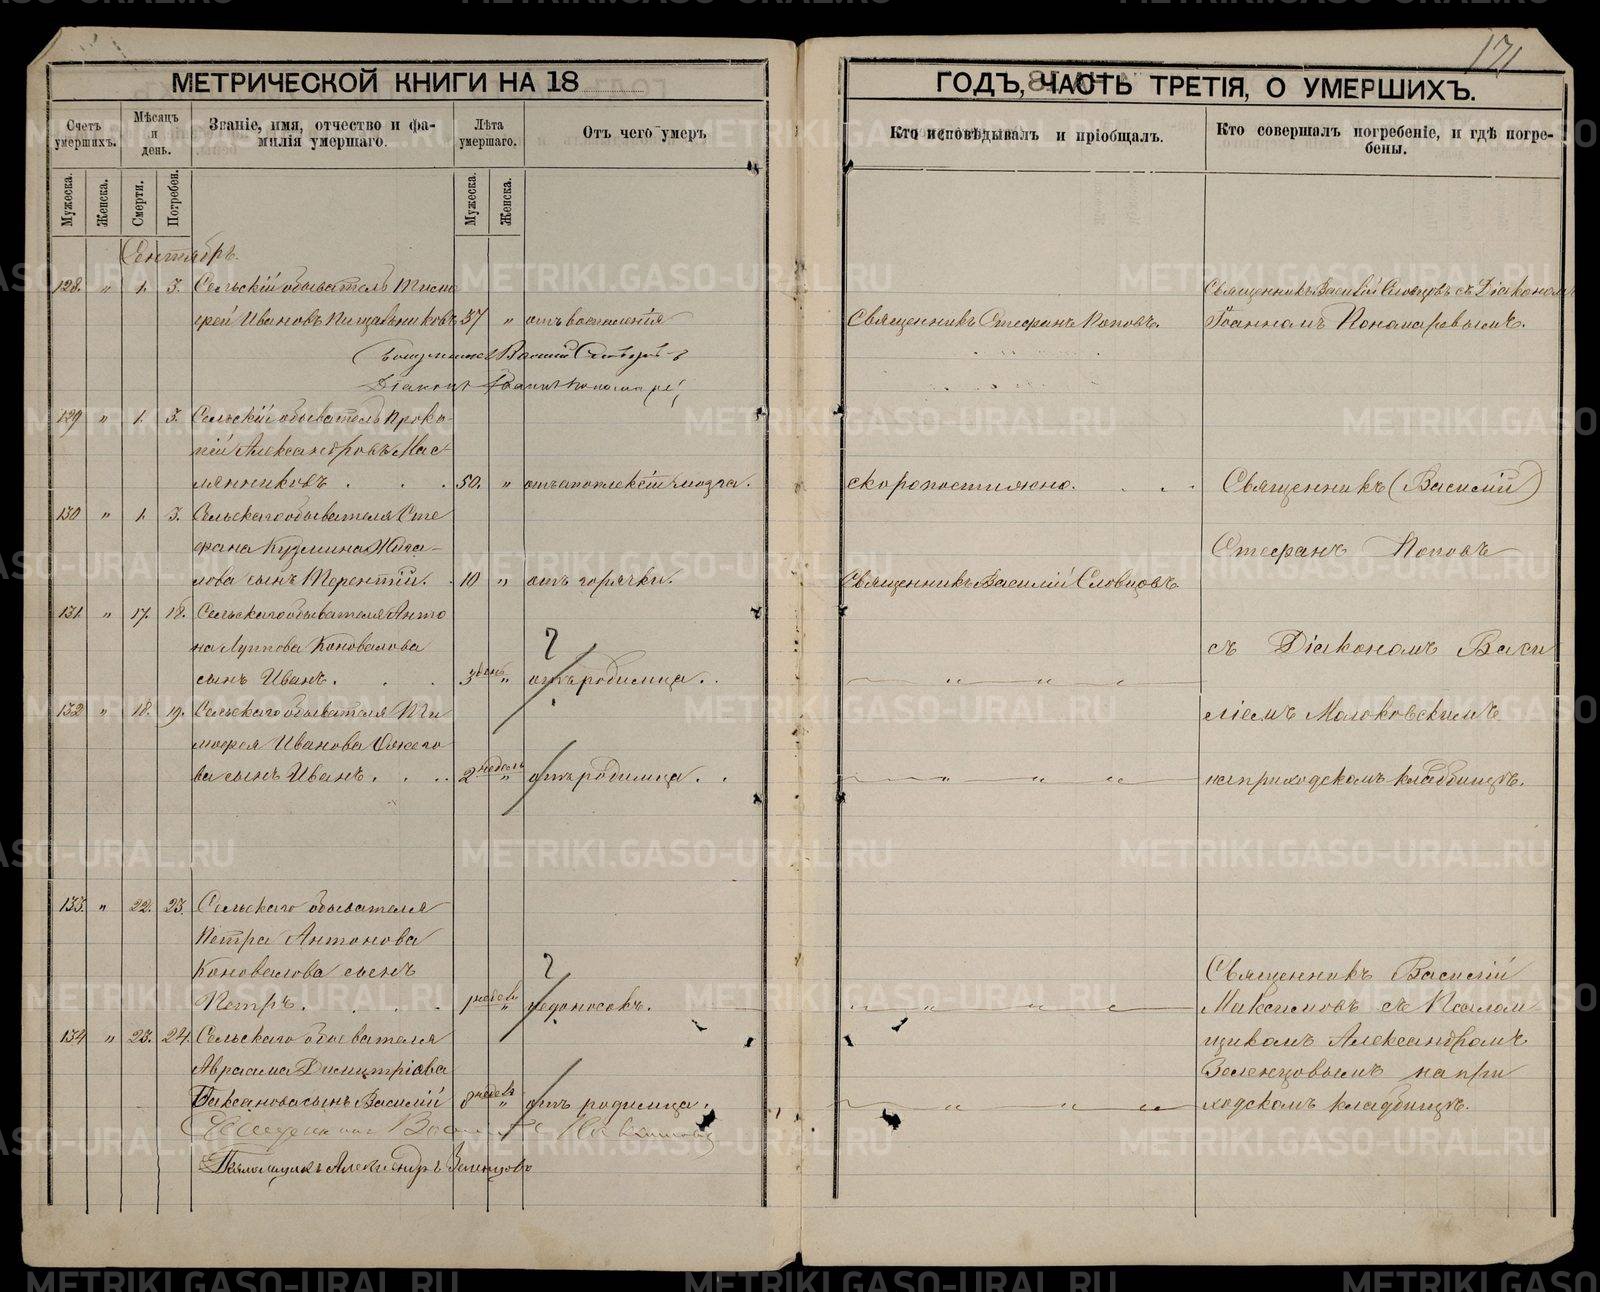 171
МЕТРИЧЕСКОЙ КНИГИ НА 18
ГОДЪ, ЧАСТЬ ТРЕТІЯ, О УМЕРШИХЪ.
Счетъ умершихъ.
Мѣсяцъ и день.
Званіе, имя, отчество и фамилія умершаго.
Лѣта умершаго.
Отъ чего умеръ
Кто исповѣдывалъ и пріобщалъ.
Кто совершалъ погребеніе, и гдѣ погребены.
Мужеска. Женска. Смерти. Погребен. Мужеска. Женска.
Сентябрь.
128. " 1. 3. Сельскій обыватель
Ивановъ Пищальниковъ 57 " отъ воспаленія
Священникъ Стефанъ Поповъ.
Священникъ Василій Словцовъ съ Діакономъ
Іоанномъ Пономаревымъ.
Священникъ Василій Словцовъ
Діаконъ Іоаннъ Пономаре
129 " 1. 3. Сельскій обыватель Проко-
пій Александровъ Мас-
лянниковъ . . . 50. " отъ апоплексіи мозга.
скоропостижно. . .
Священникъ (Василій)
130 " 1. 3. Сельскаго обывателя Сте
фана Кузмина Жига-
лова сынъ Терентій. 10 " отъ горячки.
Священникъ Василій Словцовъ
Стефанъ Поповъ
131. " 17. 18. Сельскаго обывателя Анто
на Луппова Коновалова
сынъ Иванъ. . . " отъ родимца. .
?
съ Діакономъ Васи
132 " 18. 19. Сельскаго обывателя Ти
мофея Иванова
ва сынъ Иванъ. . . 2 недель " отъ родимца. .
ліемъ Малоковскимъ
на приходскомъ кладбищѣ.
133. " 22. 23. Сельскаго обывателя
Петра Антонова
Коновалова сынъ
Петръ. . . . недели " недоносокъ.
?
Священникъ Василій
Максимовъ съ Псалом
134 " 23. 24. Сельскаго обывателя
Авраама Димитріева
сынъ Василій недель " отъ родимца.
щикомъ Александромъ
Зеленцовымъ на при
ходскомъ кладбищѣ.
Священникъ Василій Максимовъ
Псаломщикъ Александръ Зеленцовъ
METRIKI.GASO-URAL.RU